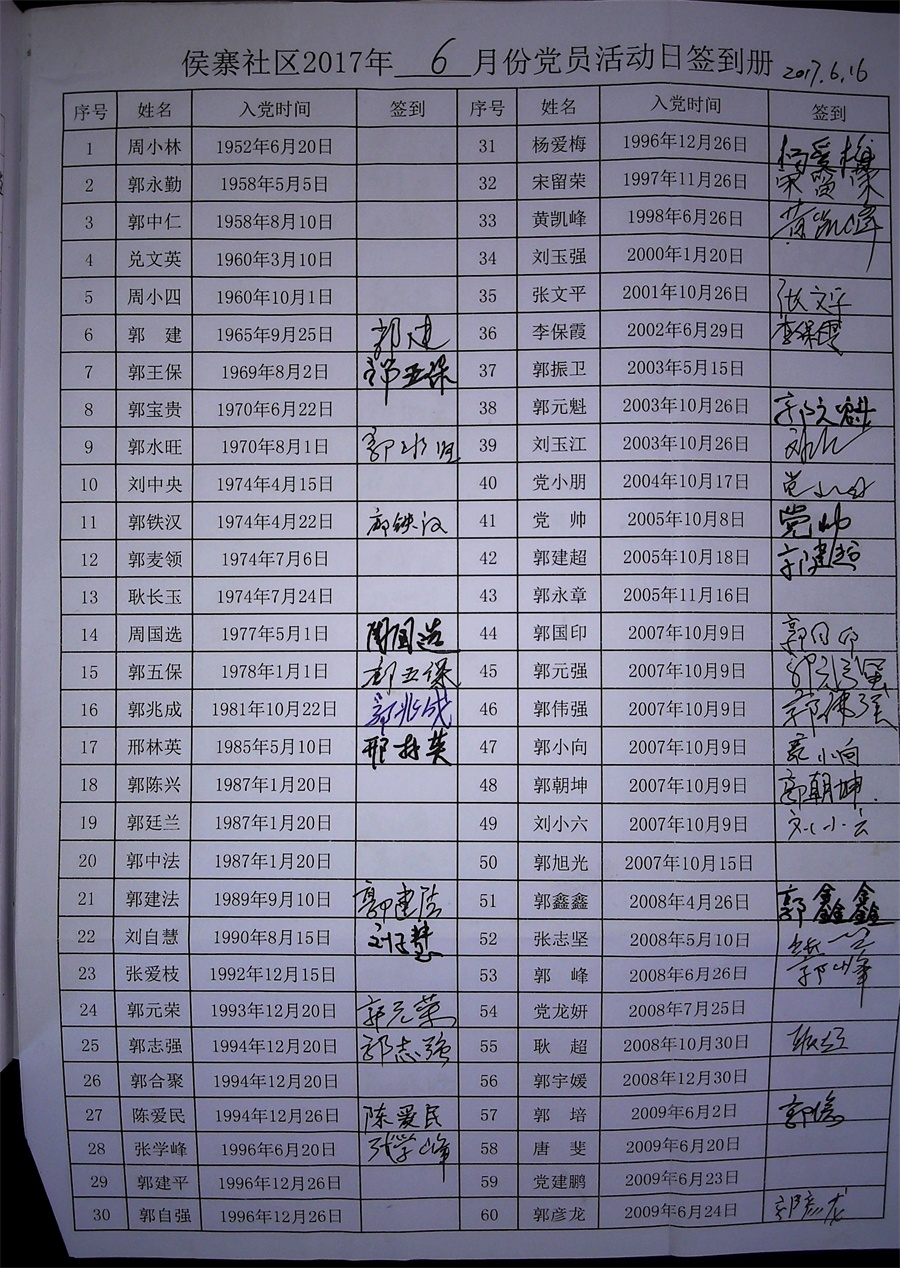 侯寨社区2017年 6 月份党员活动日签到册 2017.6.16
序号 姓名 入党时间 签到 序号 姓名 入党时间 签到
1 周小林 1952年6月20日 31 杨爱梅 1996年12月26日 杨爱梅
2 郭永勤 1958年5月5日 32 宋留荣 1997年11月26日 宋留荣
3 郭中仁 1958年8月10日 33 黄凯峰 1998年6月26日 黄凯峰
4 兑文英 1960年3月10日 34 刘玉强 2000年1月20日
5 周小四 1960年10月1日 35 张文平 2001年10月26日 张文平
6 郭 建 1965年9月25日 郭建 36 李保霞 2002年6月29日 李保霞
7 郭王保 1969年8月2日 郭王保 37 郭振卫 2003年5月15日
8 郭宝贵 1970年6月22日 38 郭元魁 2003年10月26日 郭元魁
9 郭水旺 1970年8月1日 郭水旺 39 刘玉江 2003年10月26日
10 刘中央 1974年4月15日 40 党小朋 2004年10月17日 党小朋
11 郭铁汉 1974年4月22日 郭铁汉 41 党 帅 2005年10月8日 党帅
12 郭麦领 1974年7月6日 42 郭建超 2005年10月18日 郭建超
13 耿长玉 1974年7月24日 43 郭永章 2005年11月16日
14 周国选 1977年5月1日 周国选 44 郭国印 2007年10月9日 郭国印
15 郭五保 1978年1月1日 郭五保 45 郭元强 2007年10月9日 郭元强
16 郭兆成 1981年10月22日 郭兆成 46 郭伟强 2007年10月9日 郭伟强
17 邢林英 1985年5月10日 邢林英 47 郭小向 2007年10月9日 郭小向
18 郭陈兴 1987年1月20日 48 郭朝坤 2007年10月9日 郭朝坤
19 郭廷兰 1987年1月20日 49 刘小六 2007年10月9日 刘小六
20 郭中法 1987年1月20日 50 郭旭光 2007年10月15日
21 郭建法 1989年9月10日 郭建法 51 郭鑫鑫 2008年4月26日 郭鑫鑫
22 刘自慧 1990年8月15日 刘自慧 52 张志坚 2008年5月10日
23 张爱枝 1992年12月15日 53 郭 峰 2008年6月26日 郭峰
24 郭元荣 1993年12月20日 郭元荣 54 党龙妍 2008年7月25日
25 郭志强 1994年12月20日 郭志强 55 耿 超 2008年10月30日 耿超
26 郭合聚 1994年12月20日 56 郭宇媛 2008年12月30日
27 陈爱民 1994年12月26日 陈爱民 57 郭 培 2009年6月2日 郭培
28 张学峰 1996年6月20日 张学峰 58 唐 斐 2009年6月20日
29 郭建平 1996年12月26日 59 党建鹏 2009年6月23日
30 郭自强 1996年12月26日 60 郭彦龙 2009年6月24日 郭彦龙